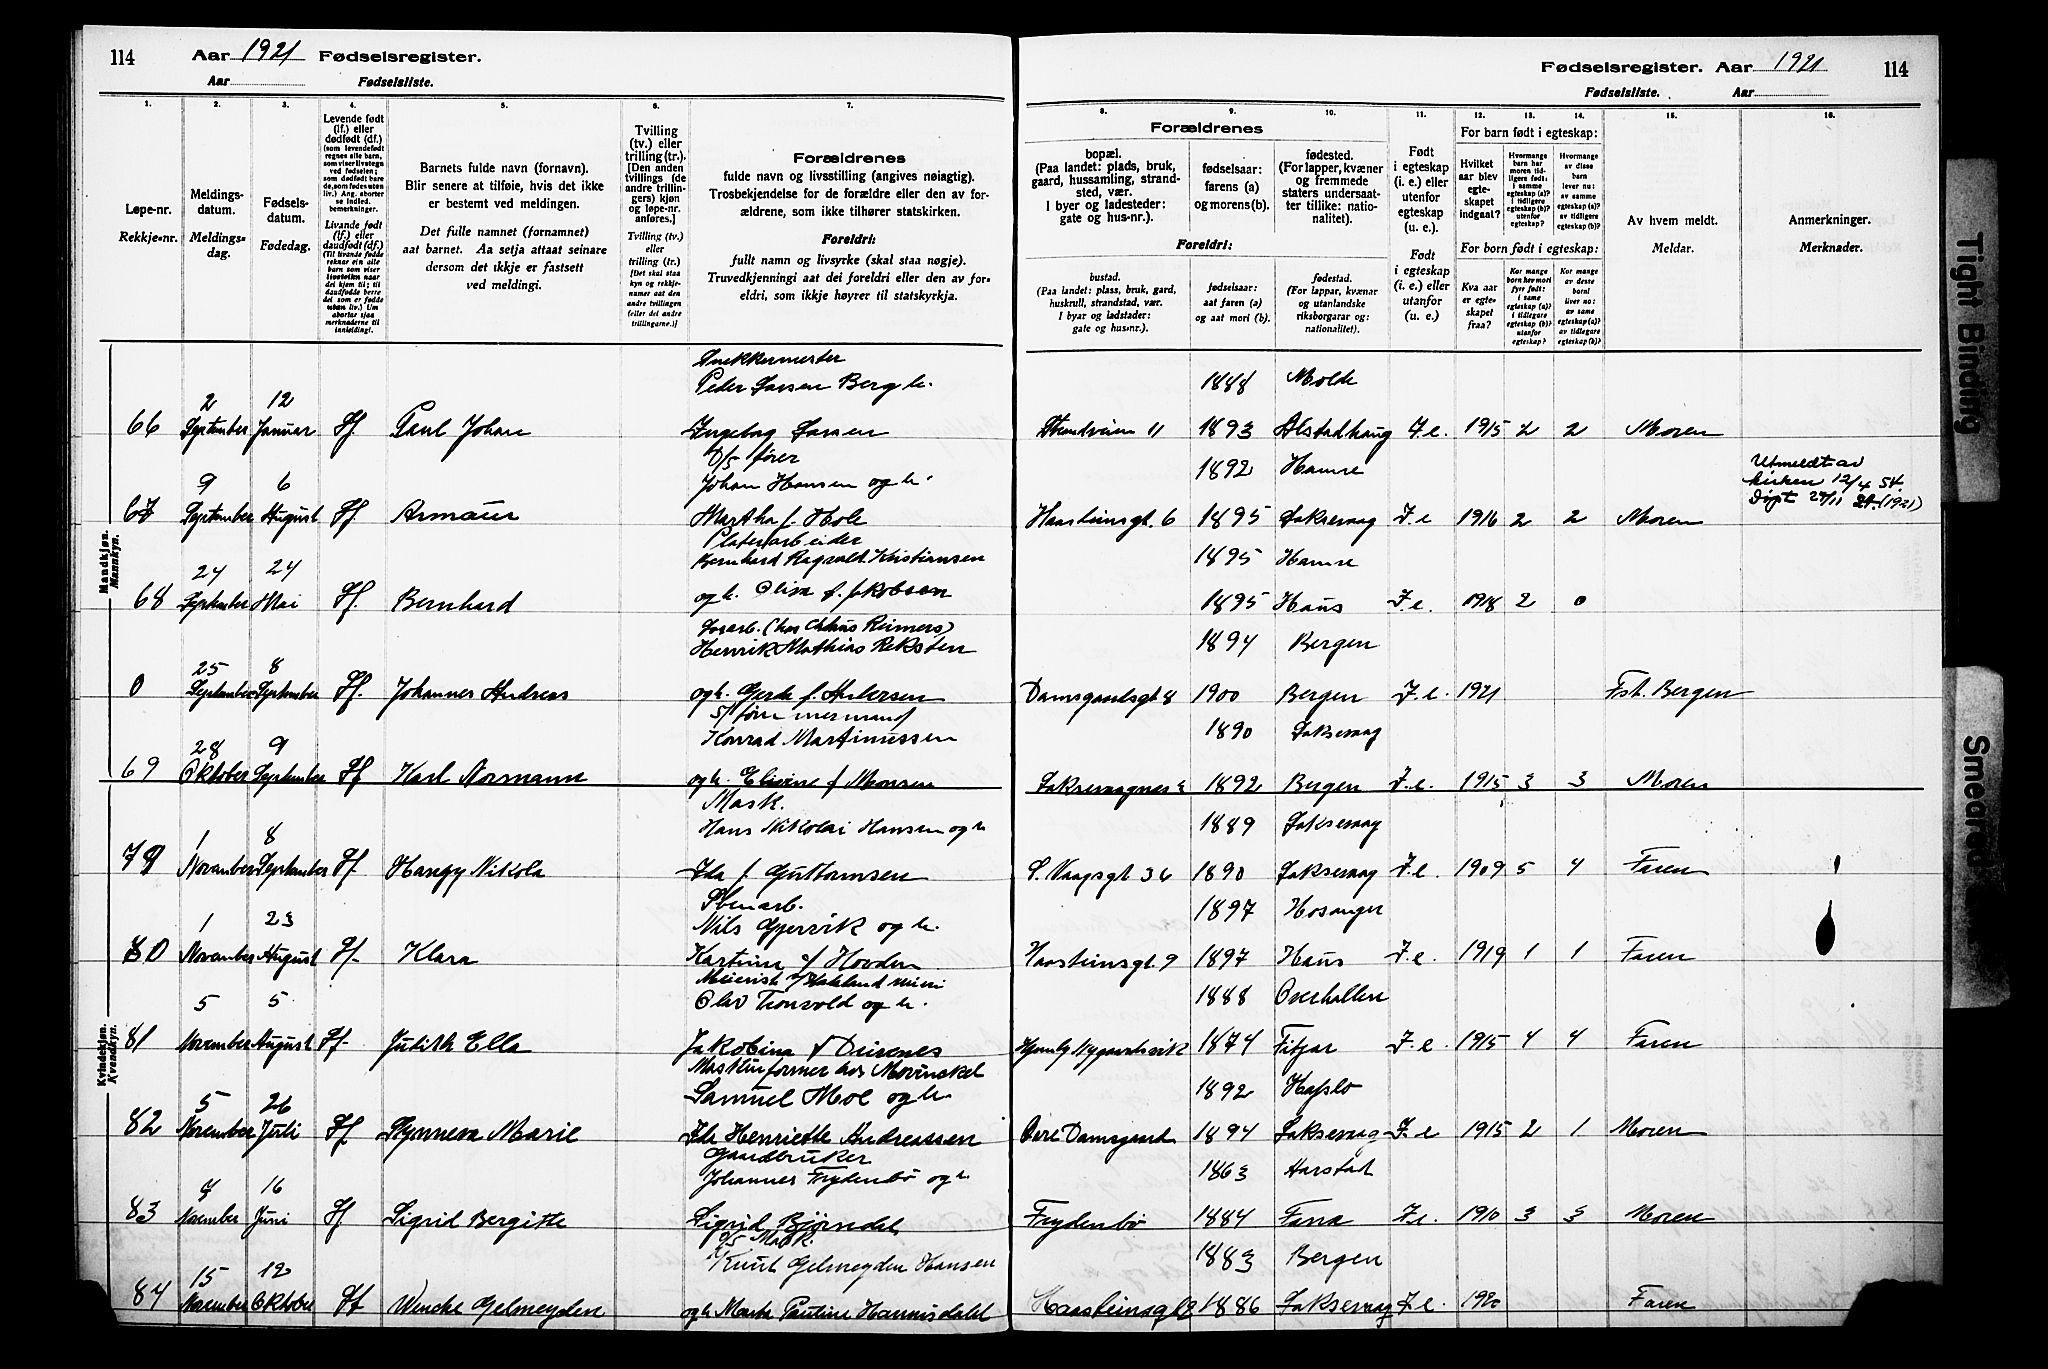 114
Aar 1921 Fødselsregister.
Aar Fødselsliste.
Fødselsregister. Aar 1921
114
Fødselsliste. Aar
1. 2. 3. 4. 5. 6. 7.
8. 9. 10. 11. 12. 13. 14. 15. 16.
Løpe-nr.
Rekkje-nr.
Meldings-
datum.
Meldings-
dag.
Fødsels-
datum.
Fødedag.
Levende født
(lf.) eller
dødfødt (df.)
Livande født
(lf.) eller
daudfødt (df.)
Barnets fulde navn (fornavn).
Blir senere at tilføie, hvis det ikke
er bestemt ved meldingen.
Det fulle namnet (fornamnet)
aat barnet. Aa setja attaat seinare
dersom det ikkje er fastsett
ved meldingi.
Tvilling
(tv.) eller
trilling (tr.).
[Den anden
tvillings (de
andre trillin-
gers) kjøn
og løpe-nr.
anføres.]
Tvilling (tv.)
eller
trilling (tr.)
[Det skal staa
kyn og rekkje-
numer aat den
andre tvillingen
(eller dei andre
trillingarne.)]
Forældrenes
fulde navn og livsstilling (angives nøiagtig).
Trosbekjendelse for de forældre eller den av for-
ældrene, som ikke tilhører statskirken.
Foreldri:
fullt namn og livsyrke (skal staa nøgje).
Truvedkjenningi aat dei foreldri eller den av for-
eldri, som ikkje høyrer til statskyrkja.
Forældrenes
bopæl.
(Paa landet: plads, bruk,
gaard, hussamling, strand-
sted, vær.
I byer og ladesteder:
gate og hus-nr.).
fødselsaar:
farens (a)
og morens (b).
fødested.
(For lapper, kvæner
og fremmede
staters undersaat-
ter tillike: natio-
nalitet).
Foreldri:
bustad.
(Paa landet: plass, bruk, gard,
huskrull, strandstad, vær.
I byar og ladstader:
gate og hus-nr.).
fødselsaar:
aat faren (a)
og aat mori (b).
fødestad.
(For lappar, kvænar
og utanlandske
riksborgarar og:
nationalitet).
Født
i egteskap
(i. e.) eller
utenfor
egteskap
(u. e.).
Født
i egteskap
(i. e.) eller
utanfor
(u. e.).
For barn født i egteskap:
Hvilket
aar blev
egte-
skapet
indgaat?
For born født i egteskap:
Kva aar
er egte-
skapet
fraa?
Av hvem meldt.
Meldar.
Anmerkninger.
Merknader.
Mandkjøn.
Mannkyn.
Snekkermester
2 12 Peder Larsen Berg h. 1888 Molde
66 September Januar Lf. Paul Johan Ingeborg Larsen Strandveien 11 1893 Alstadhaug I.e. 1915 2 2 Moren
D/S fører
9 6 Johan Hansen og h. 1892 Hamre Utmeldt av
kirken 12/4 54.
67 September August Lf Armaur Martha f. Hole Haasteinsgt. 6 1895 Laksevaag I.e 1916 2 2 Moren Døpt 27/11 21. (1921)
Platearbeider
24 24 Bernhard Ragnvald Kristiansen 1895 Hamre
68 September Mai Lf. Bernhard og h. Olina f. Jakobsen 1895 Haus I.e. 1918 2 0
25 8 Henrik Mathias Reksten 1894 Bergen
0 September September Lf. Johannes Andreas og h. Gerda f. Andersen Damsgaardsgt 8 1900 Bergen I.e. 1921 Fst. Bergen
28 9 Konrad Martinussen 1890 Laksevaag
69 Oktober September Lf Karl Normann og h. Elivine f Monsen Laksevaagnes 1892 Bergen I.e. 1915 3 3 Moren
Kvindekjøn.
Kvendkyn.
Mask.
1 8 Hans Nikolai Hansen og h 1889 Laksevaag
79 November September Lf. Hansy Nikola Ida f. Guttormsen S. Vaagsgt 36 1890 Laksevaag I.e. 1909 5 4 Faren
Stenarb.
1 23 Nils Gjervik og h. 1897 Hosanger
80 November August Lf. Klara Kartrine f Hovden Haasteinsgt. 9 1897 Haus I.e. 1919 1 1 Faren
5 5 Olav Tronvold og h. 1888 Overhallen
81 November August Lf. Judith Ella Jakobina f Drivenes 1874 Fitjar I.e. 1915 4 4 Faren
Maskinformer hos Mowinckel
5 26 Samuel Mol og h 1892 Hafslo
82 November Juli Lf Synneva Marie Ida Henriette Andreassen Øvre Damsgaard 1894 Laksevaag I.e 1915 2 1 Moren
Gaardbruker
9 16 Johannes Frydenbø og h. 1863 Harstad
83 November Juni Lf Sigrid Bergitte Sigrid Bjørndal Frydenbø 1884 Fana I.e. 1910 3 3 Moren
D/S Mask.
15 12 Knut Gelmeyden Hansen 1883 Bergen
84 November Oktober Lf Wenche Gelmeyden og h Marta Pauline Hannisdahl Haasteinsgt 2 1886 Laksevaag I.e. 1920 Faren
Tight Binding
Smeared